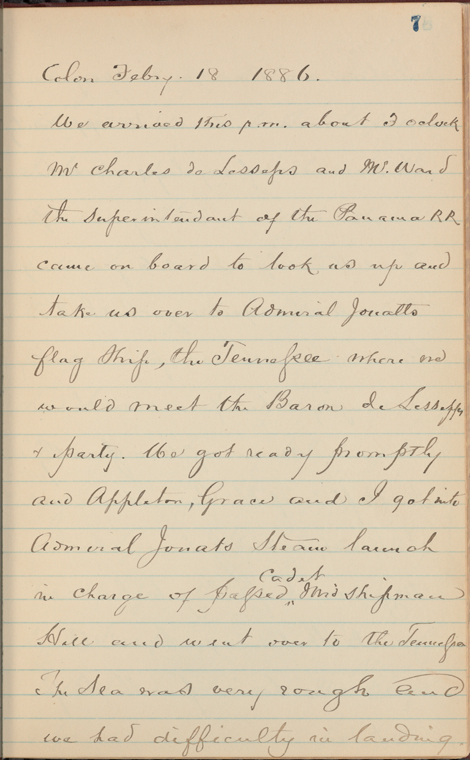 75
Colon Febry. 18 1886.
We arrived this p.m. about 3 oclock
Mr Charles de Lesseps and Mr. Ward
the Superintendant of the Panama RR
came on board to look us up and
take us over to Admiral Jouatts
flag Ship, the Tennessee where we
would meet the Baron de Lesseps
& party. We got ready promptly
and Appleton, Grace and I got into
Admiral Jouats Steam launch
cadet
in charge of passed, Midshipman
Hill and went over to the Tennessee
The Sea was very rough and
we had difficulty in landing.